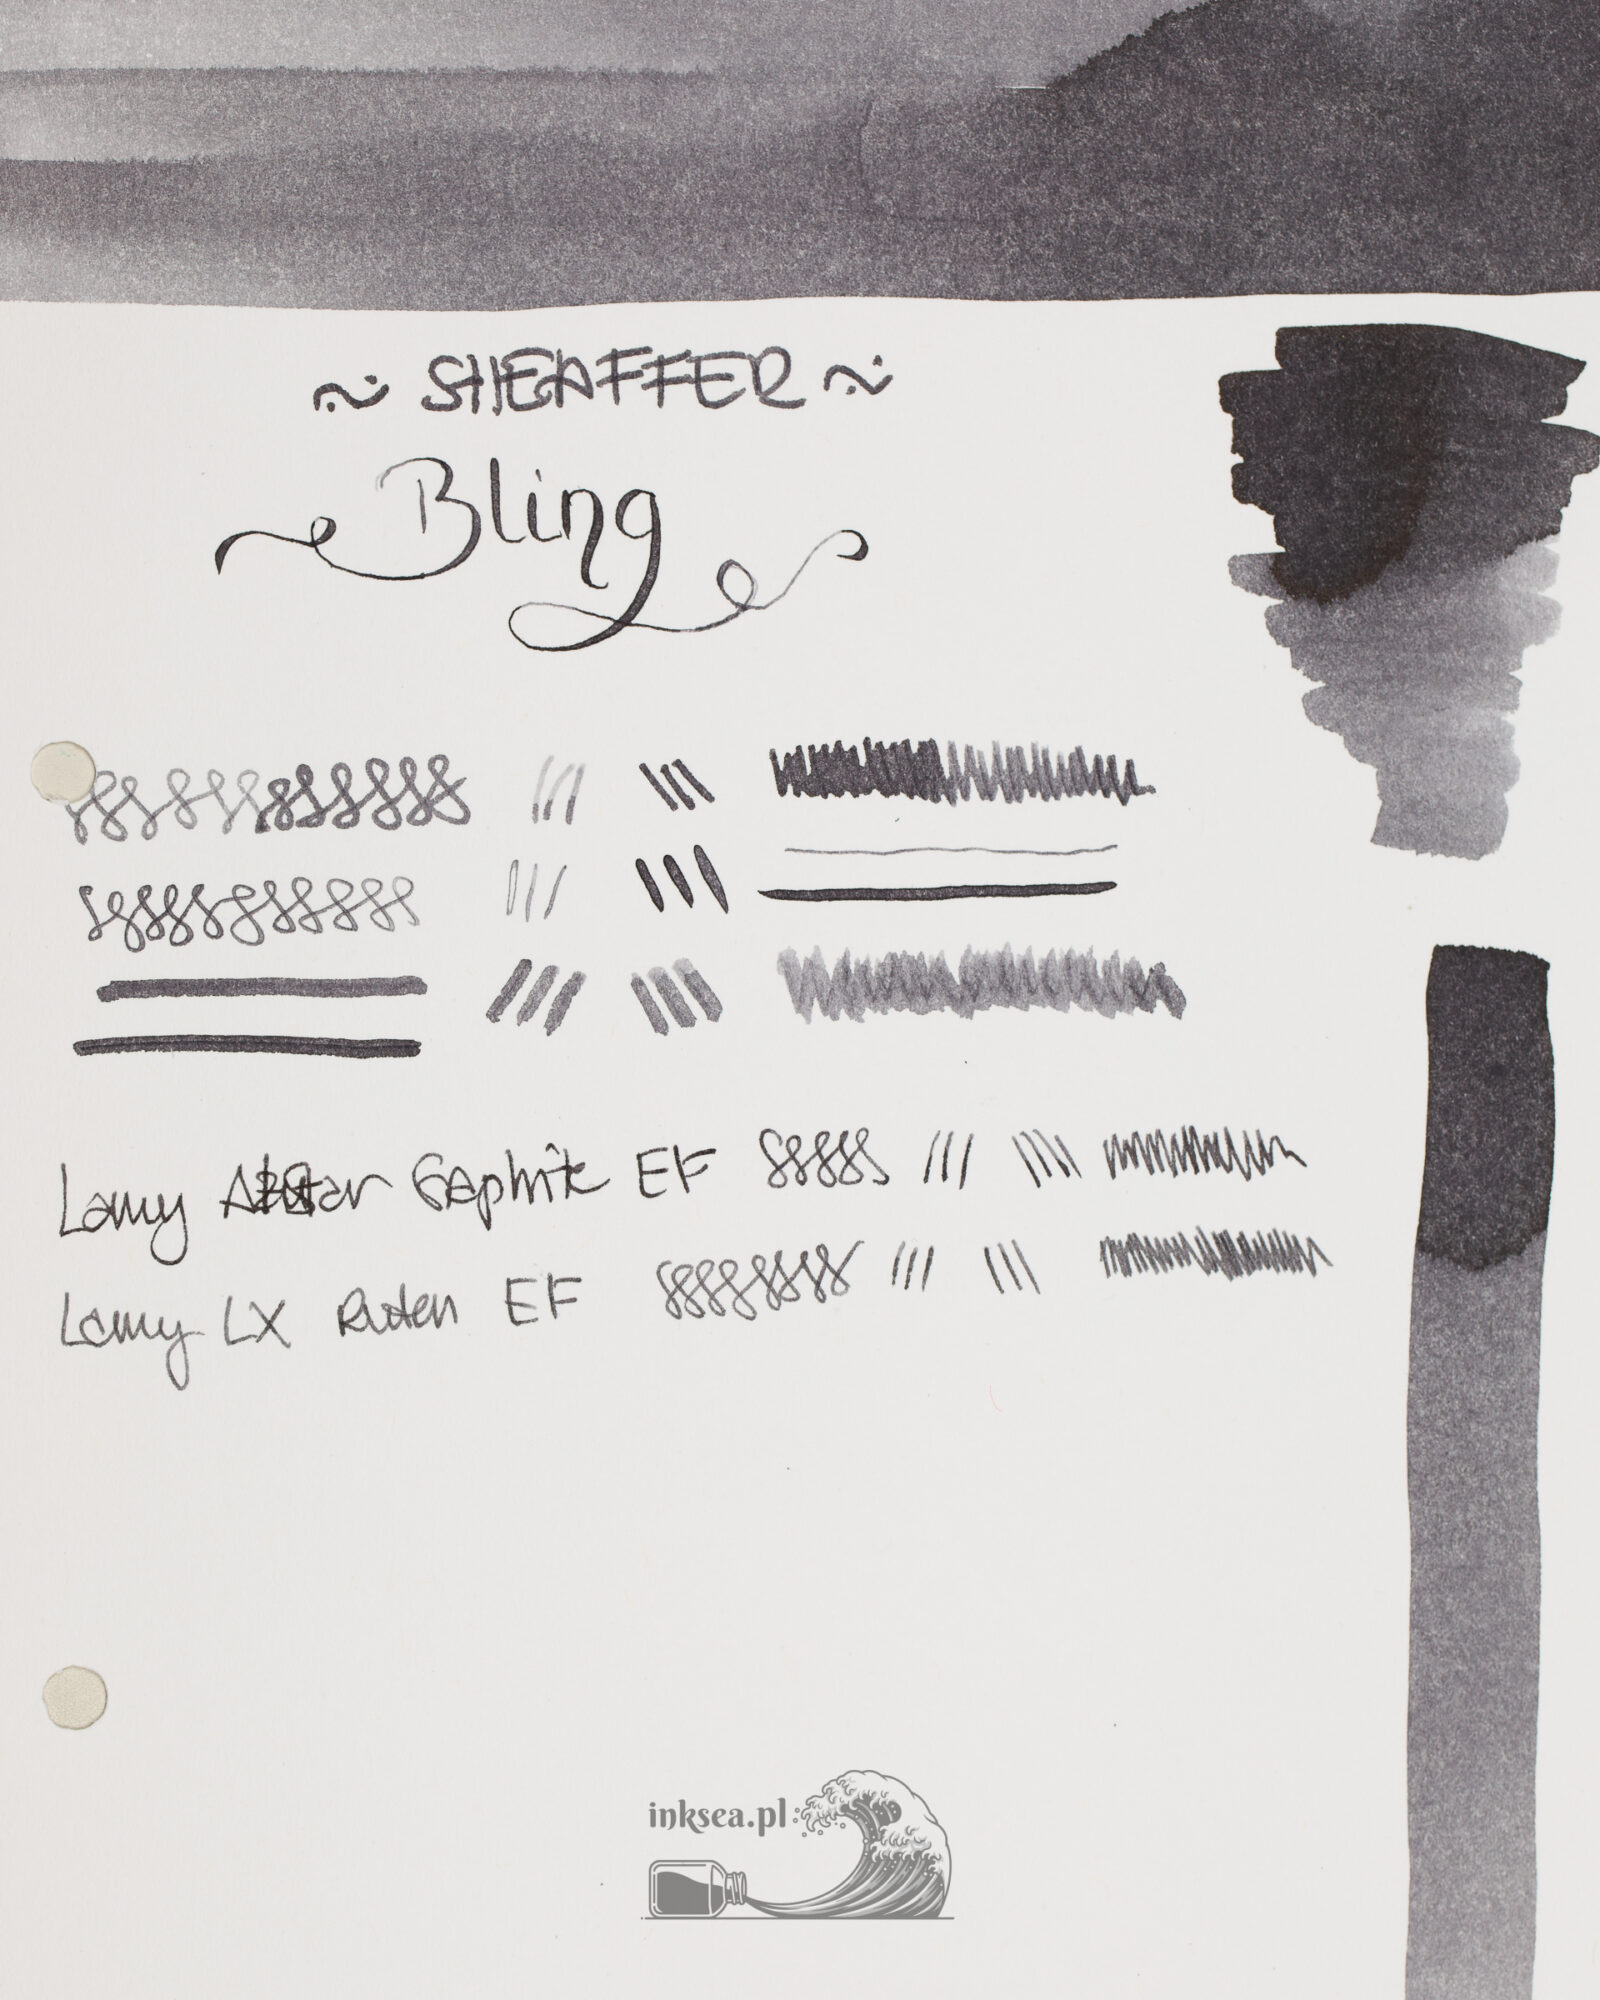 ~ SHEAFFER ~
Bling
Lamy Graphite EF
Lamy LX Ruten EF
inksea.pl